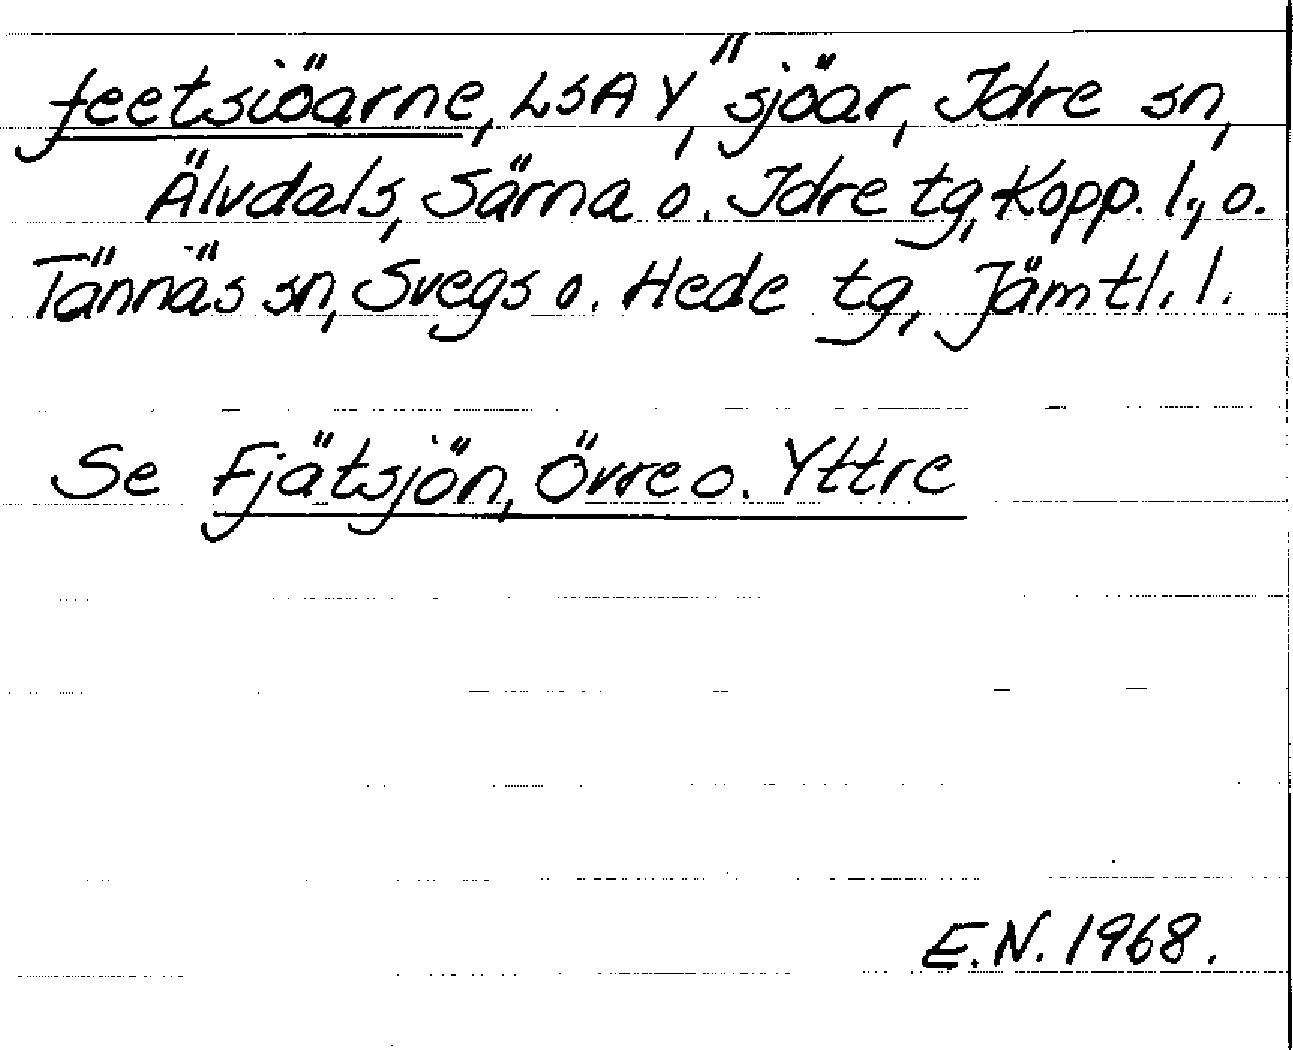 feetsiöarne, LSA Y", sjöar, Idre sn,
Älvdals, Särna o. Idre tg, Kopp. l., o.
Tännäs sn, Svegs o. Hede tg, Jämtl. l.
Se Fjätsjön, Övre o. Yttre
E.N. 1968.